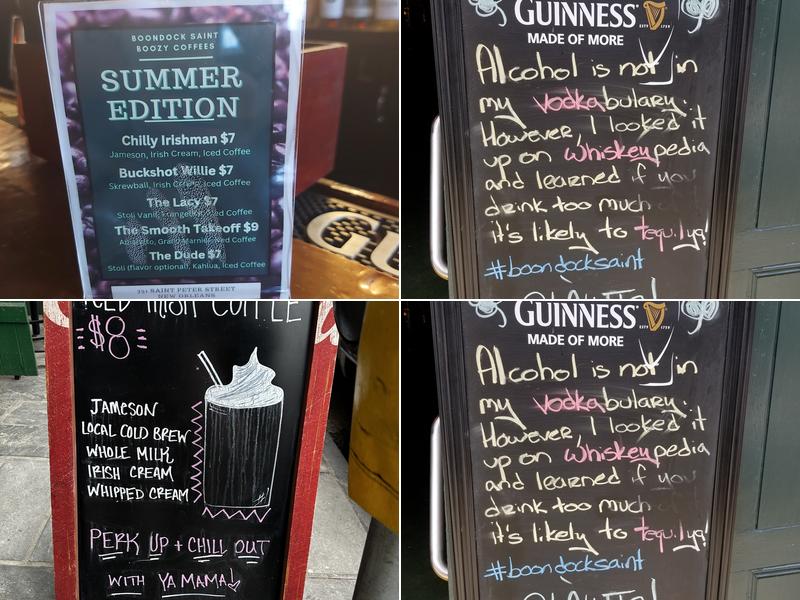 BOONDOCK SAINT
BOOZY COFFEES
SUMMER
EDITION
Chilly Irishman $7
Jameson, Irish Cream, Iced Coffee
Buckshot Willie $7
Skrewball, Irish Cream, Iced Coffee
The Lacy $7
Stoli Vanil, Frangelico, Iced Coffee
The Smooth Takeoff $9
Amaretto, Grand Marnier, Iced Coffee
The Dude $7
Stoli (flavor optional), Kahlua, Iced Coffee
731 SAINT PETER STREET
NEW ORLEANS
GUINNESS
ESTD 1759
MADE OF MORE
Alcohol is not in
my vodkabulary.
However, I looked it
up on whiskeypedia
and learned if you
drink too much
it's likely to tequilya!
#boondocksaint
ICED IRISH COFFEE
$8
JAMESON
LOCAL COLD BREW
WHOLE MILK
IRISH CREAM
WHIPPED CREAM
PERK UP + CHILL OUT
WITH YA MAMA!
GUINNESS
ESTD 1759
MADE OF MORE
Alcohol is not in
my vodkabulary.
However, I looked it
up on whiskeypedia
and learned if you
drink too much
it's likely to tequilya!
#boondocksaint